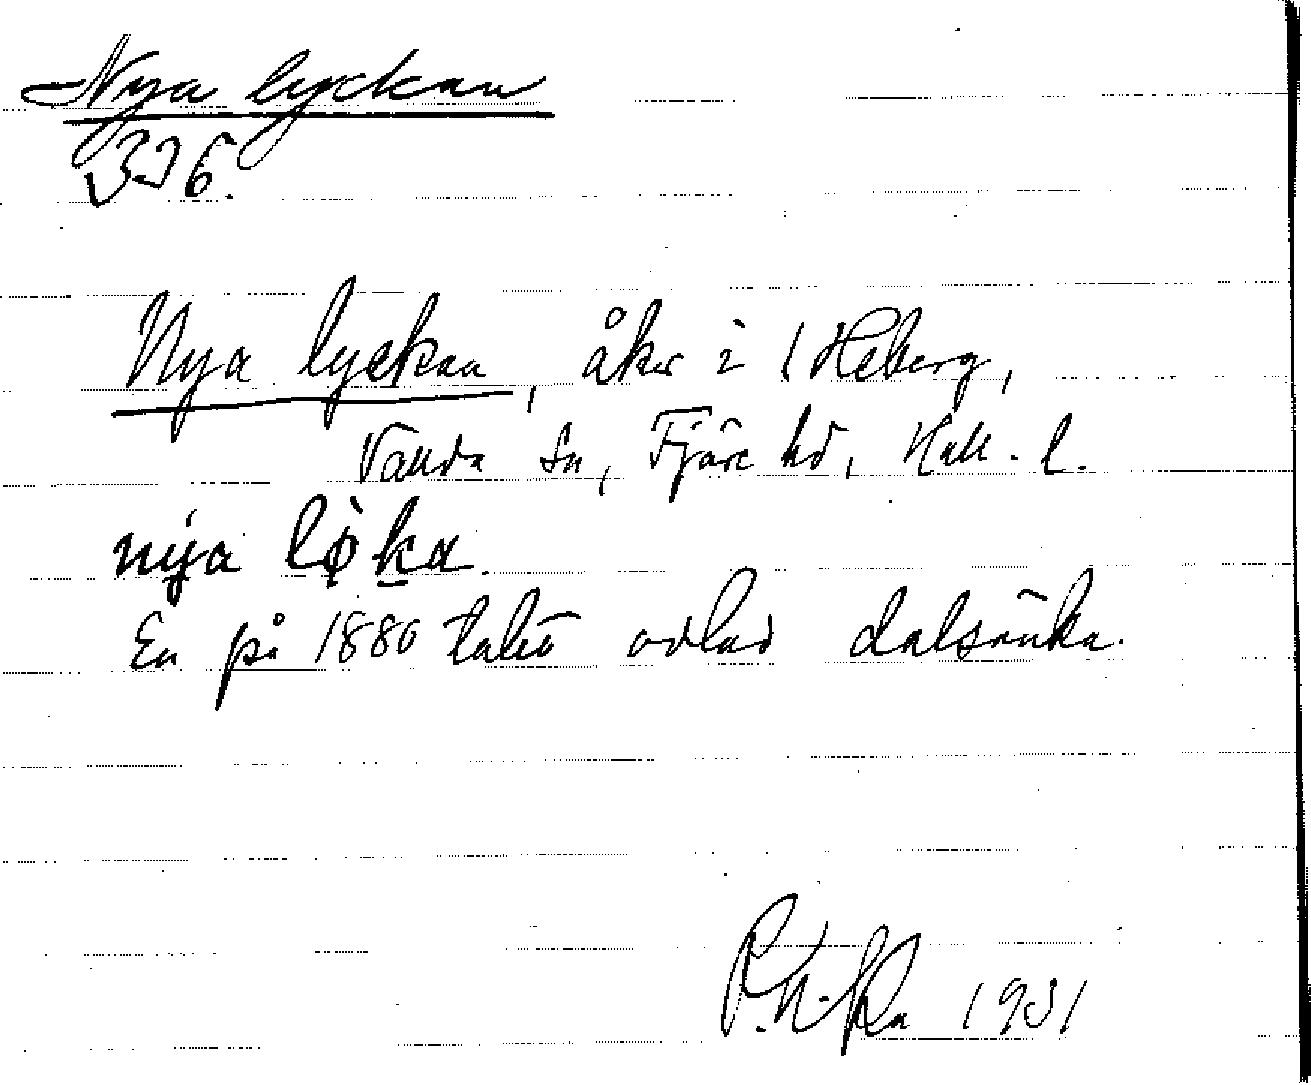 Nya lyckan
336.
Nya lyckan, åker i 1 Heberg,
Vallda sn, Fjäre hd, Hall. l.
nya lø̀ka.
En på 1880 talet odlad dalsänka.
1931